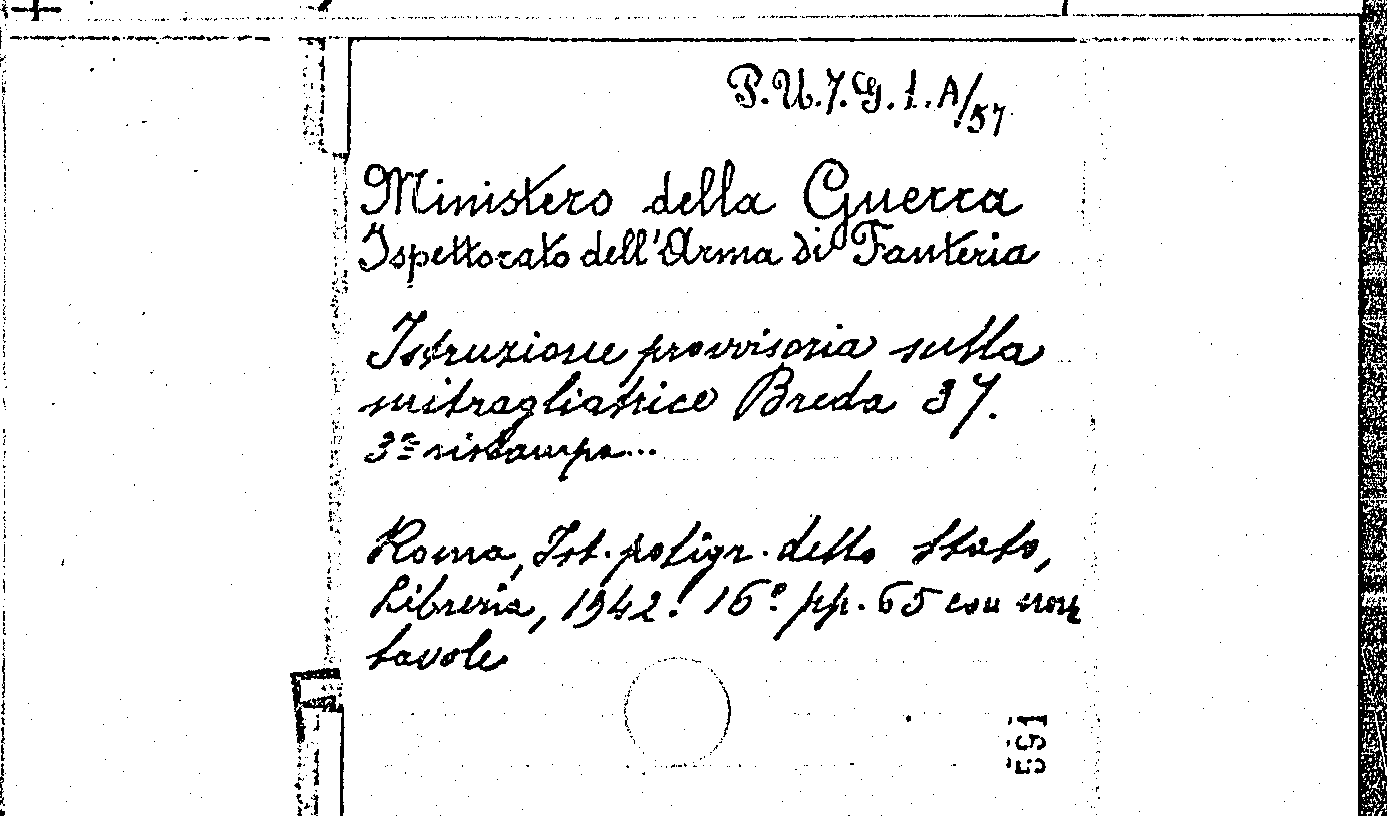 P.U.7.G.1.A/57
Ministero della Guerra
Ispettorato dell'Arma di Fanteria
Istruzione provvisoria sulla
mitragliatrice Breda 37.
3ª ristampa...
Roma, Ist. poligr. dello Stato,
Libreria, 1942. 16° pp. 65 con
tavole
591